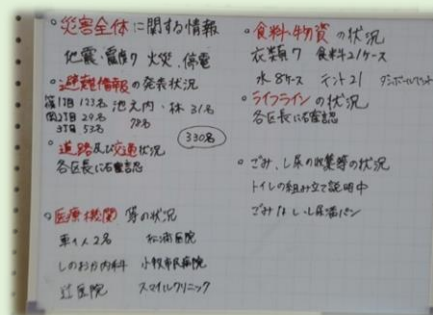 ○災害全体に関する情報
地震・震度7 火災、停電
○避難情報の発表状況
123名 池之内・林 31名
29名 78名
3丁目 53名
330名
○道路及び交通状況
各区長に確認
○医療機関 等の状況
軽傷人2名 松浦医院
しのおか内科 小牧市民病院
辻医院 スマイルクリニック
○食料・物資の状況
衣類7 食料21ケース
水8ケース テント21 ダンボールベット
○ライフラインの状況
各区長に確認
○ごみ、し尿の収集等の状況
トイレの組み立て説明中
ごみはなし し尿満パン